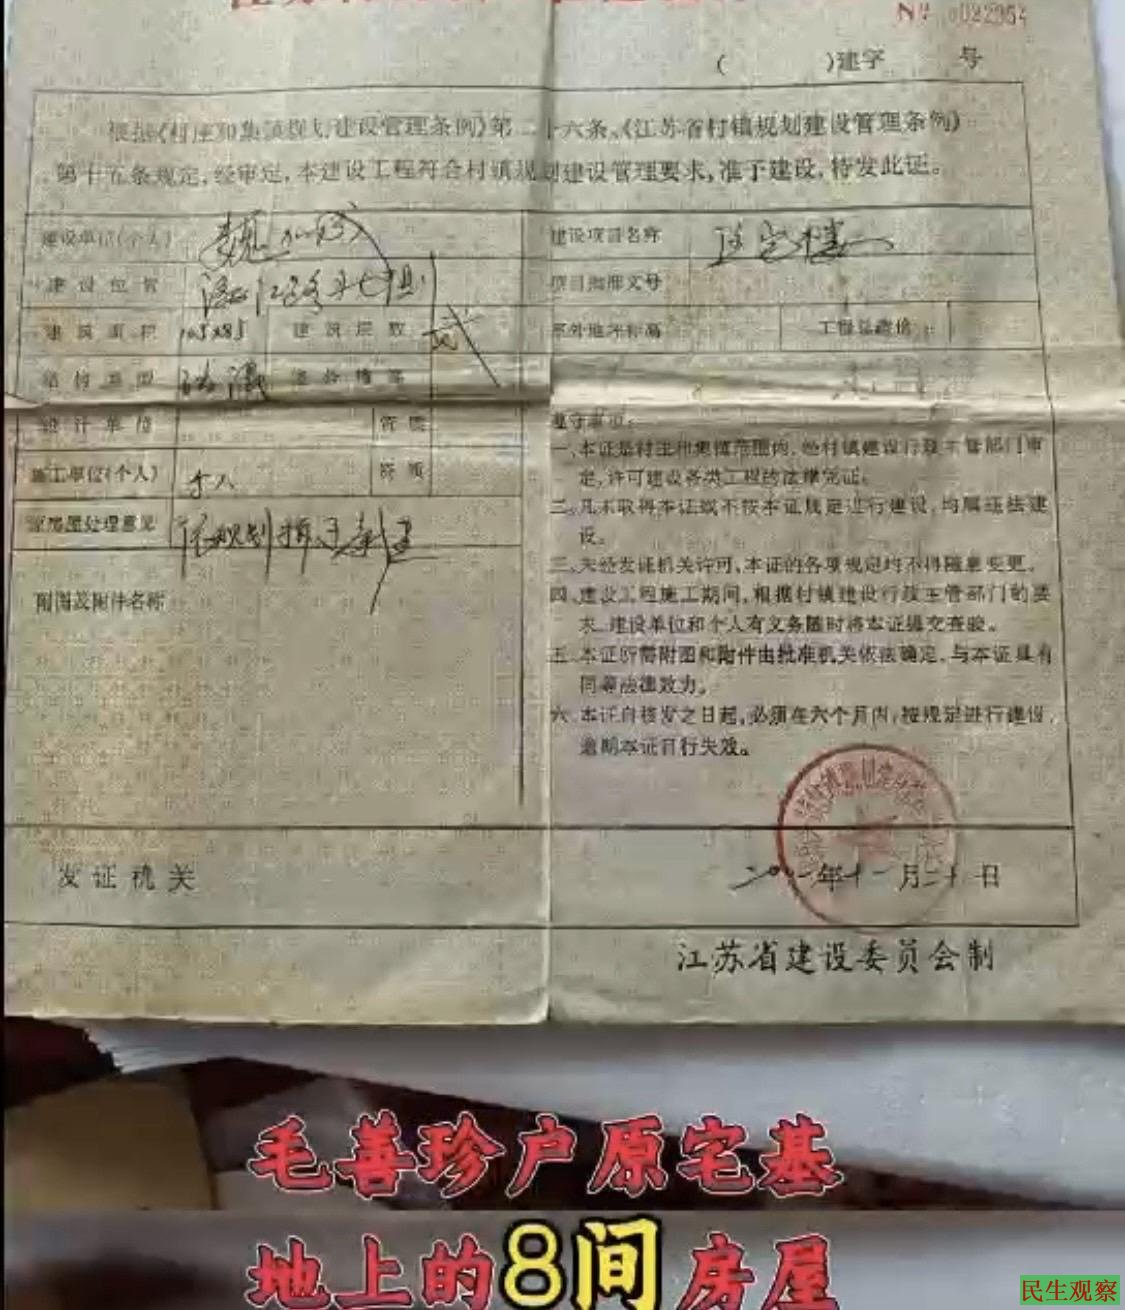 Nº 0022954
( )建字 号
根据《村庄和集镇规划建设管理条例》第二十六条、《江苏省村镇规划建设管理条例》
第十五条规定,经审定,本建设工程符合村镇规划建设管理要求,准于建设,特发此证。
建设单位(个人)
建设项目名称
建设位置
项目批准文号
建筑面积
建筑层数
室外地坪标高
工程总造价
结构类型
设计单位 资质
施工单位(个人) 个人 资质
原房屋处理意见
附图及附件名称
遵守事项:
一、本证是村庄和集镇范围内,经村镇建设行政主管部门审
定,许可建设各类工程的法律凭证。
二、凡未取得本证或不按本证规定进行建设,均属违法建
设。
三、未经发证机关许可,本证的各项规定均不得随意变更。
四、建设工程施工期间,根据村镇建设行政主管部门的要
求,建设单位和个人有义务随时将本证提交查验。
五、本证所需附图和附件由批准机关依法确定,与本证具有
同等法律效力。
六、本证自核发之日起,必须在六个月内,按规定进行建设,
逾期本证自行失效。
发证机关
二00一年十一月二十日
江苏省建设委员会制
毛善珍户原宅基
地上的8间房屋
民生观察